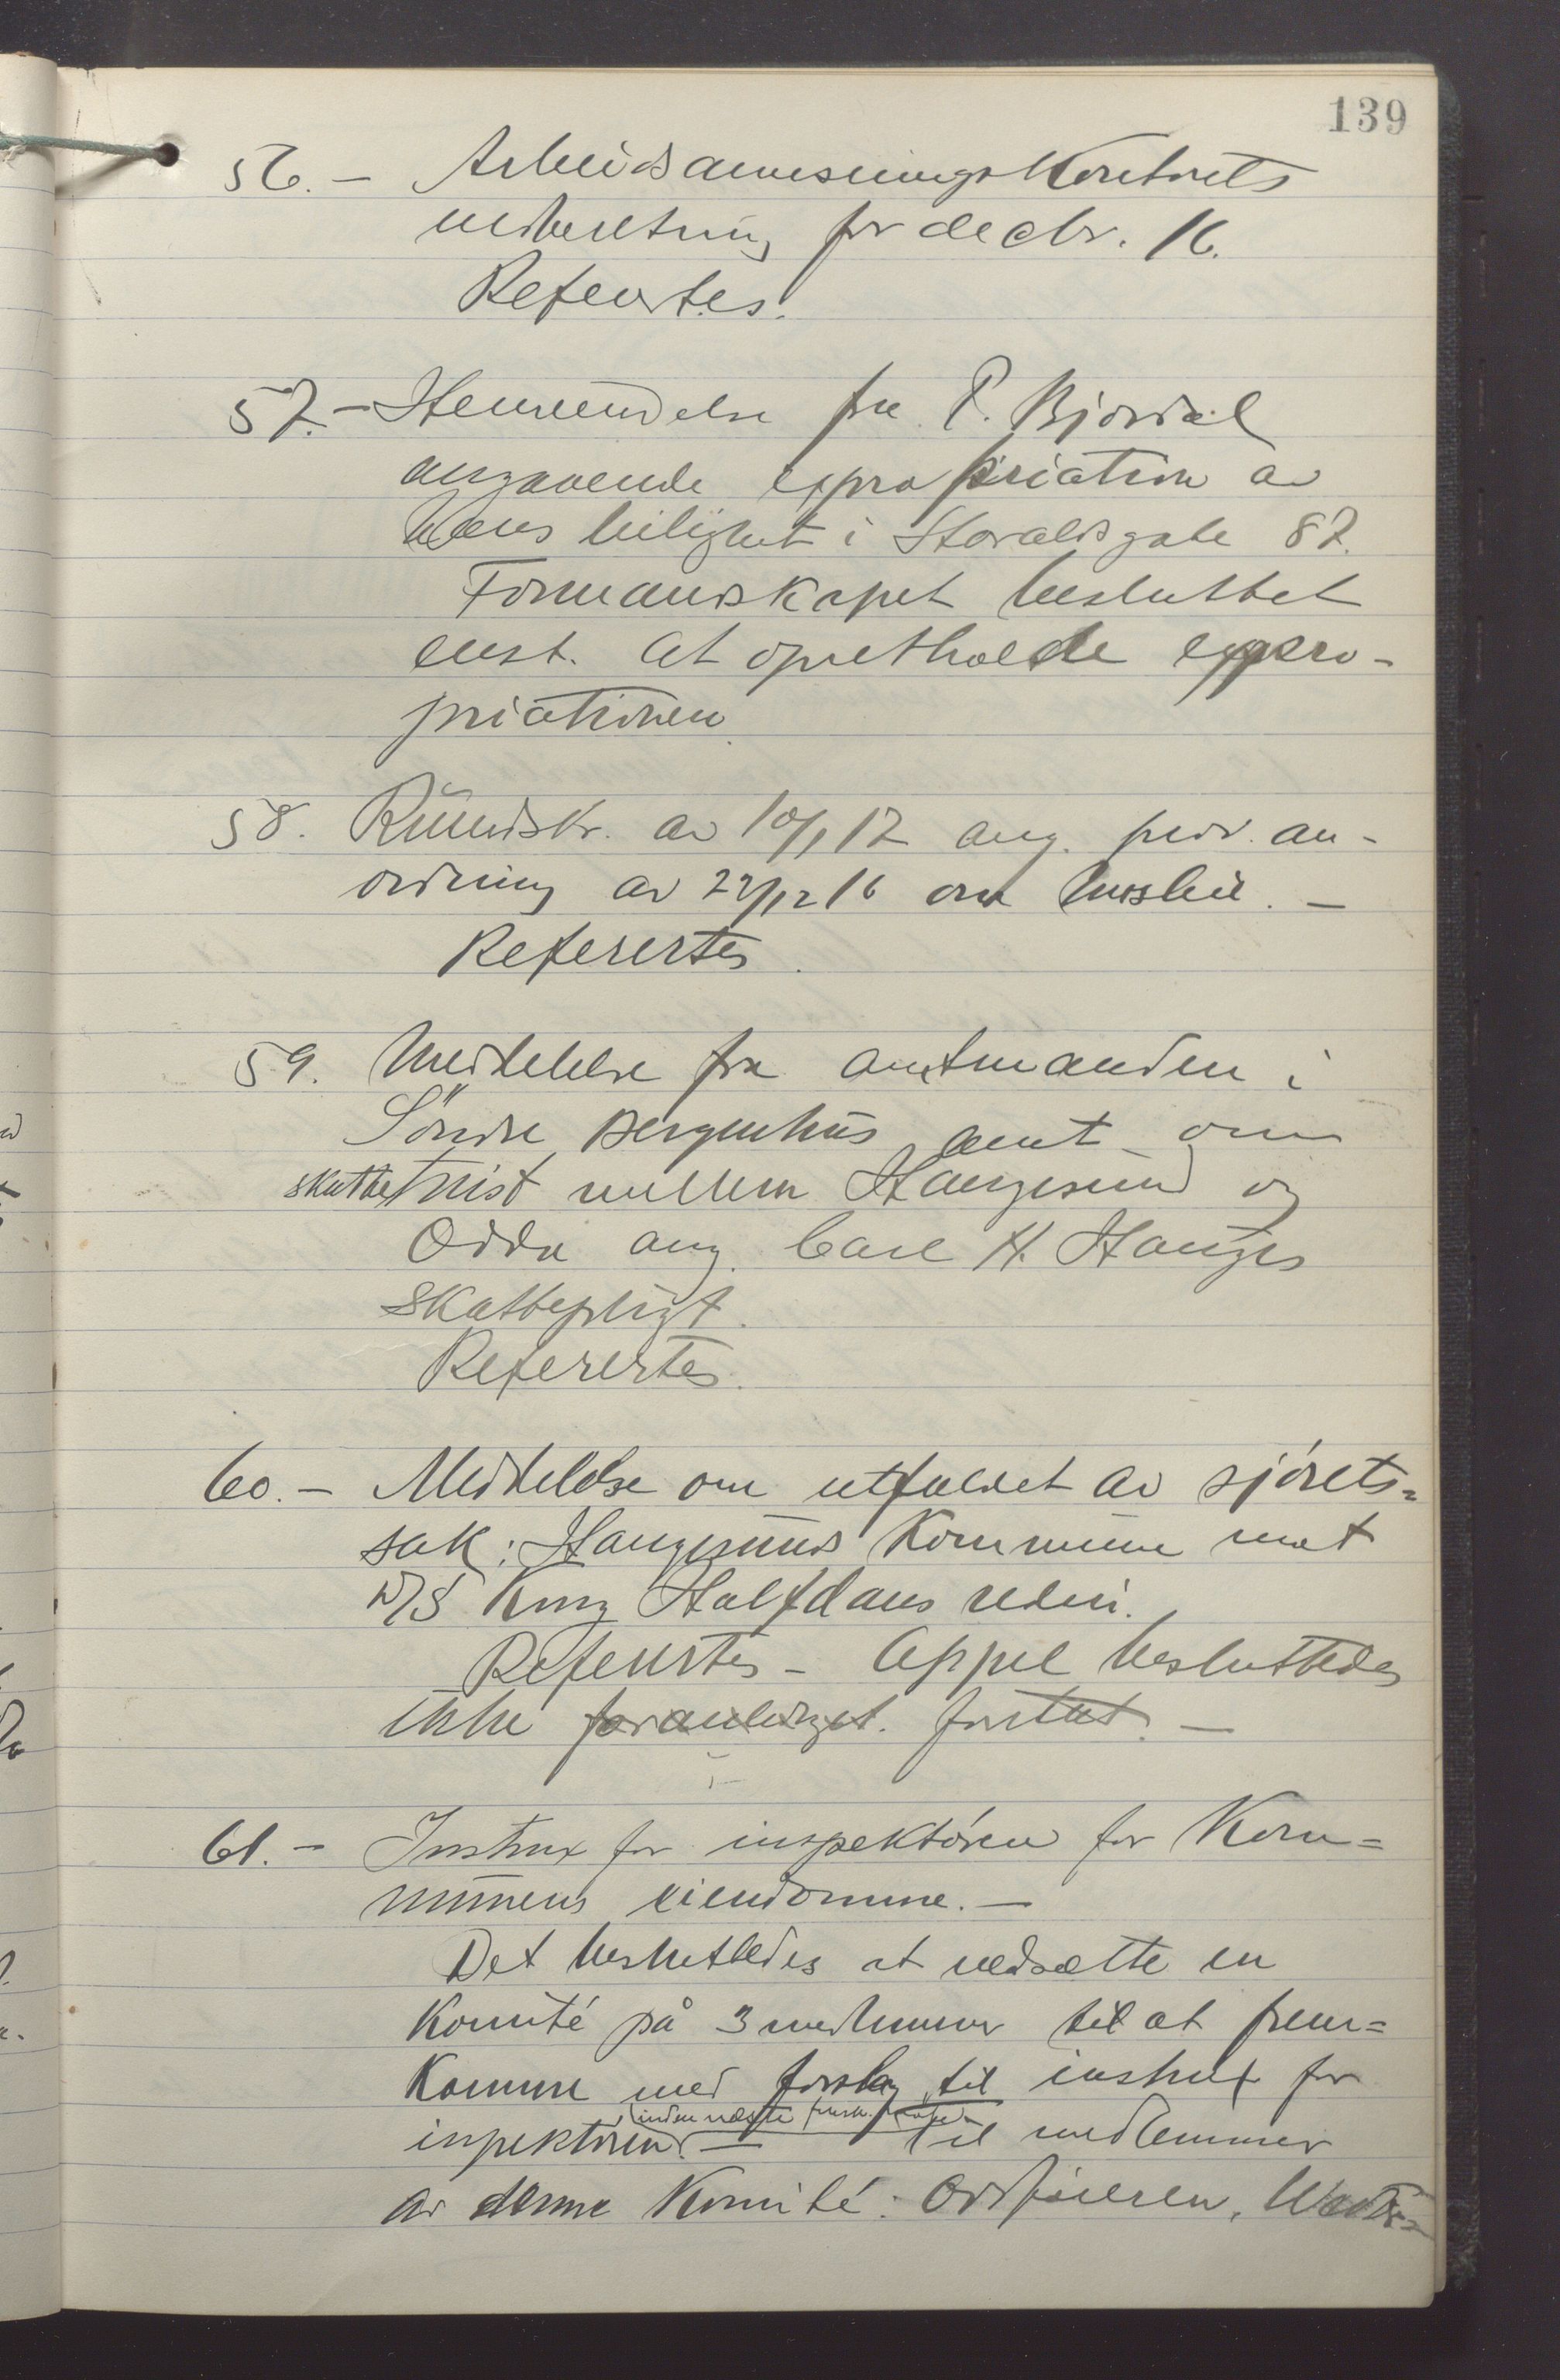 139
56. - Arbeidsanvisningskontorets
indberetning for decbr. 16.
Refertes.
57. - Henvendelse fra P. Bjordal
angaaende expropriation av
hans leilighet i Haraldsgate 87.
Formandskapet besluttet
enst. at opretholde expro-
priationen.
58. Rundskr. av 10/1 17 ang. prov. an-
ordning av 22/12 16 om husleie. -
Refertertes.
59. Meddelelse fra amtmanden i
Söndre Bergenhus amt om
skattetvist mellem Haugesund og
Odda ang. Carl H. Hauges
skattepligt.
Refertertes.
60. - Meddelelse om utfaldet av sjörets-
sak: Haugesunds Kommune mot
D/S Kong Halfdans rederi.
Refertes - Appel besluttedes
ikke foranlediget. fortat. -
61. - Instrux for inspektören for Kom=
munens eiendomme. -
Det besluttedes at nedsætte en
Komité på 3 medlemmer til at frem=
komme med forslag til instrux for
(inden næste
inspektören. - Til medlemmer
av denne Komité: Ordföreren,